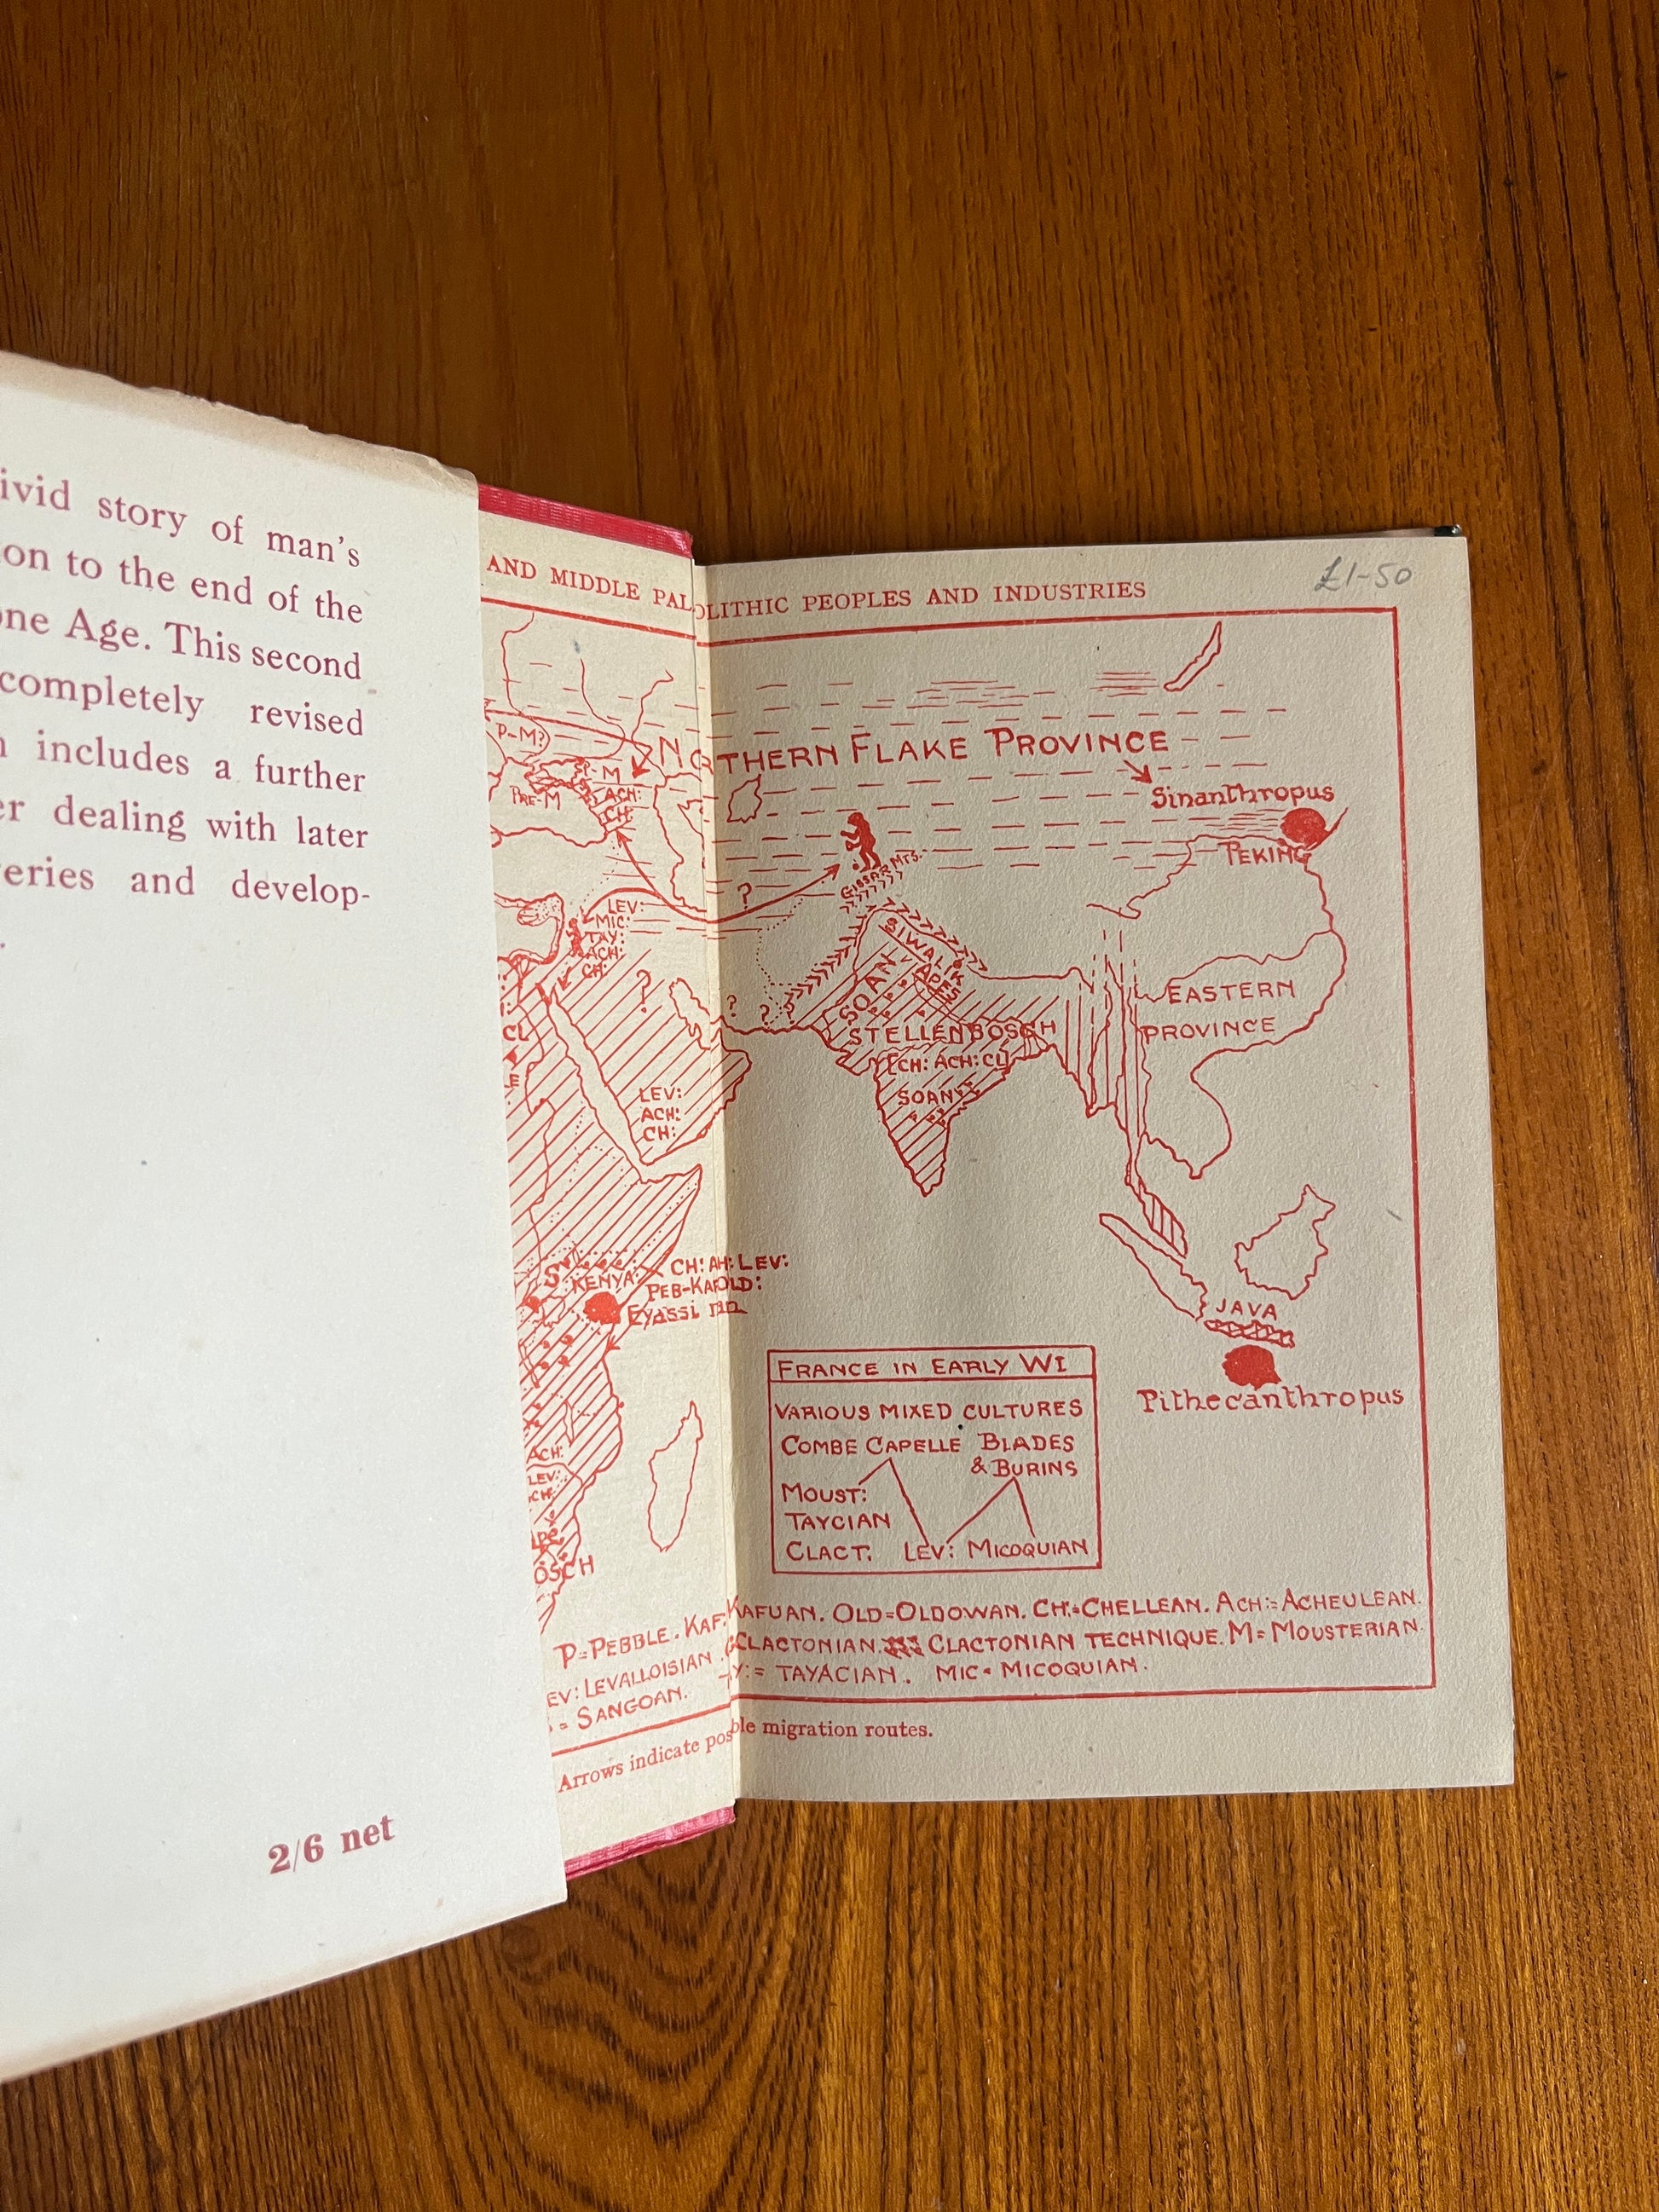 ivid story of man's
on to the end of the
ne Age. This second
completely revised
includes a further
er dealing with later
eries and develop-
2/6 net
£1-50
AND MIDDLE PALÆOLITHIC PEOPLES AND INDUSTRIES
NORTHERN FLAKE PROVINCE
P-M?
P-M
PRE-M
ACH:
CH:
Sinanthropus
PEKING
GISSAR MTS.
?
LEV:
MIC:
TAY:
ACH:
CH:
SIWALIK
SOAN
?
?
?
EASTERN
PROVINCE
STELLENBOSCH
[CH: ACH: CL]
SOAN
CL
LEV:
ACH:
CH:
S
KENYA
CH: AH: LEV:
PEB-KAF OLD:
Eyassi
JAVA
Pithecanthropus
FRANCE IN EARLY WI
VARIOUS MIXED CULTURES
COMBE CAPELLE BLADES
& BURINS
MOUST:
TAYCIAN
CLACT: LEV: MICOQUIAN
ACH:
LEV:
CH:
OSCH
P=PEBBLE. KAF: KAFUAN. OLD=OLDOWAN. CH:=CHELLEAN. ACH:=ACHEULEAN.
EV: LEVALLOISIAN. CLACTONIAN. CLACTONIAN TECHNIQUE. M=MOUSTERIAN.
= SANGOAN. Y:= TAYACIAN. MIC= MICOQUIAN.
Arrows indicate possible migration routes.